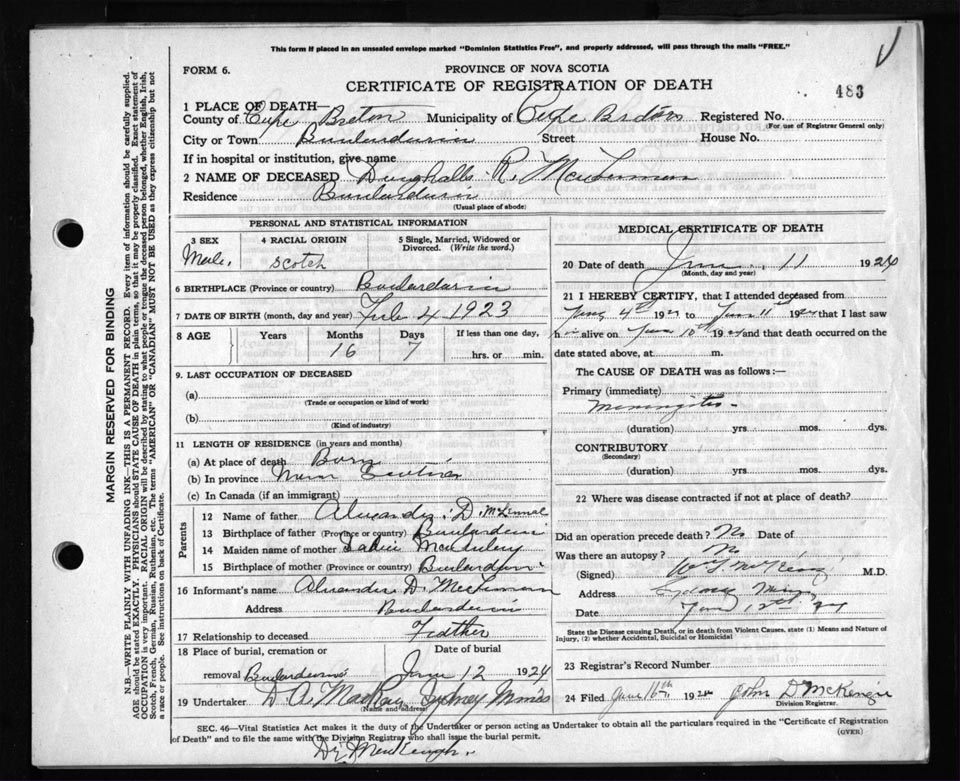 This form if placed in an unsealed envelope marked "Dominion Statistics Free", and properly addressed, will pass through the mails "FREE."
FORM 6.
PROVINCE OF NOVA SCOTIA
CERTIFICATE OF REGISTRATION OF DEATH
483
1 PLACE OF DEATH—
County of Cape Breton Municipality of Cape Breton Registered No.
(For use of Registrar General only)
City or Town Boularderie Street House No.
If in hospital or institution, give name
2 NAME OF DECEASED R. McLennan
Residence Boularderie
(Usual place of abode)
PERSONAL AND STATISTICAL INFORMATION
3 SEX Male.
4 RACIAL ORIGIN Scotch
5 Single, Married, Widowed or Divorced. (Write the word.)
6 BIRTHPLACE (Province or country) Boularderie
7 DATE OF BIRTH (month, day and year) Feb 4 1923
8 AGE Years Months Days If less than one day,
16 7 hrs. or min.
9. LAST OCCUPATION OF DECEASED
(a)
(Trade or occupation or kind of work)
(b)
(Kind of industry)
11 LENGTH OF RESIDENCE (in years and months)
(a) At place of death Born
(b) In province Nova Scotia
(c) In Canada (if an immigrant)
Parents
12 Name of father Alexander D. McLennan
13 Birthplace of father (Province or country) Boularderie
14 Maiden name of mother McAuley
15 Birthplace of mother (Province or country) Boularderie
16 Informant's name Alexander D. McLennan
Address Boularderie
17 Relationship to deceased Father
18 Place of burial, cremation or removal Boularderie
Date of burial June 12 1924
19 Undertaker D. A. MacKay Sydney Mines
(Name and address)
MEDICAL CERTIFICATE OF DEATH
20 Date of death June 11 1924
(Month, day and year)
21 I HEREBY CERTIFY, that I attended deceased from
June 4th 1924 to June 11th 1924 that I last saw
h im alive on June 10th 1924 and that death occurred on
date stated above, at m.
The CAUSE OF DEATH was as follows:—
Primary (immediate)
Meningitis -
(duration) yrs. mos. dys.
CONTRIBUTORY
(Secondary)
(duration) yrs. mos. dys.
22 Where was disease contracted if not at place of death?
Did an operation precede death? No Date of
Was there an autopsy? No
(Signed) M.D.
Address Sydney Mines
Date June 12th 24
State the Disease causing Death, or in death from Violent Causes, state (1) Means and Nature of Injury, (2) whether Accidental, Suicidal or Homicidal
23 Registrar's Record Number
24 Filed June 16th 1924 John D McKenzie
Division Registrar.
SEC. 46—Vital Statistics Act makes it the duty of the Undertaker or person acting as Undertaker to obtain all the particulars required in the "Certificate of Registration
of Death" and to file the same with the Division Registrar who shall issue the burial permit.
(OVER)
Dr MacKeough.
MARGIN RESERVED FOR BINDING
N.B.—WRITE PLAINLY WITH UNFADING INK—THIS IS A PERMANENT RECORD. Every item of information should be carefully supplied.
AGE should be stated EXACTLY. PHYSICIANS should STATE CAUSE OF DEATH in plain terms, so that it may be properly classified. Exact statement of
OCCUPATION is very important. RACIAL ORIGIN will be described by stating to what people or tongue the deceased person belonged, whether English, Irish,
Scotch, French, German, Russian, Ruthenian, etc. The terms "AMERICAN" OR "CANADIAN" MUST NOT BE USED as they express citizenship but not
a race or people. See instructions on back of Certificate.